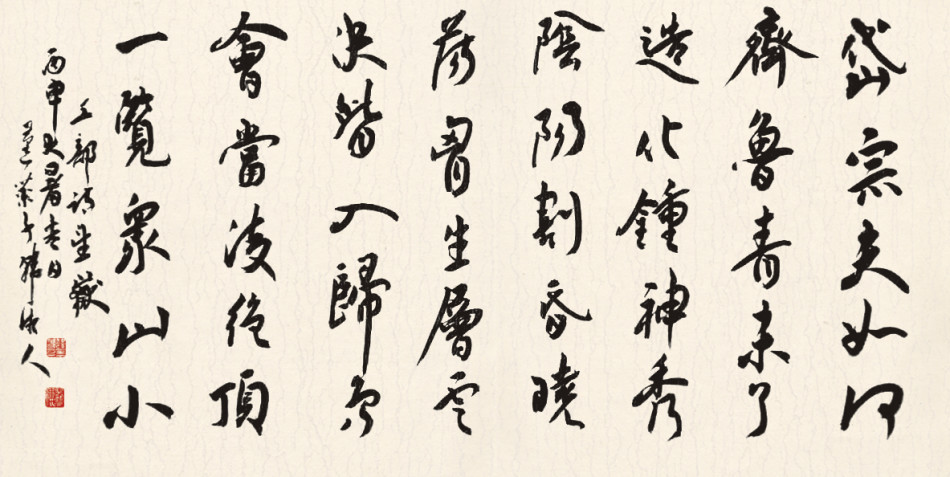 岱宗夫如何
齊魯青未了
造化鍾神秀
陰陽割昏曉
蕩胷生層雲
決眥入歸鳥
會當凌絕頂
一覽衆山小
工部詩望嶽
丙申大暑春日